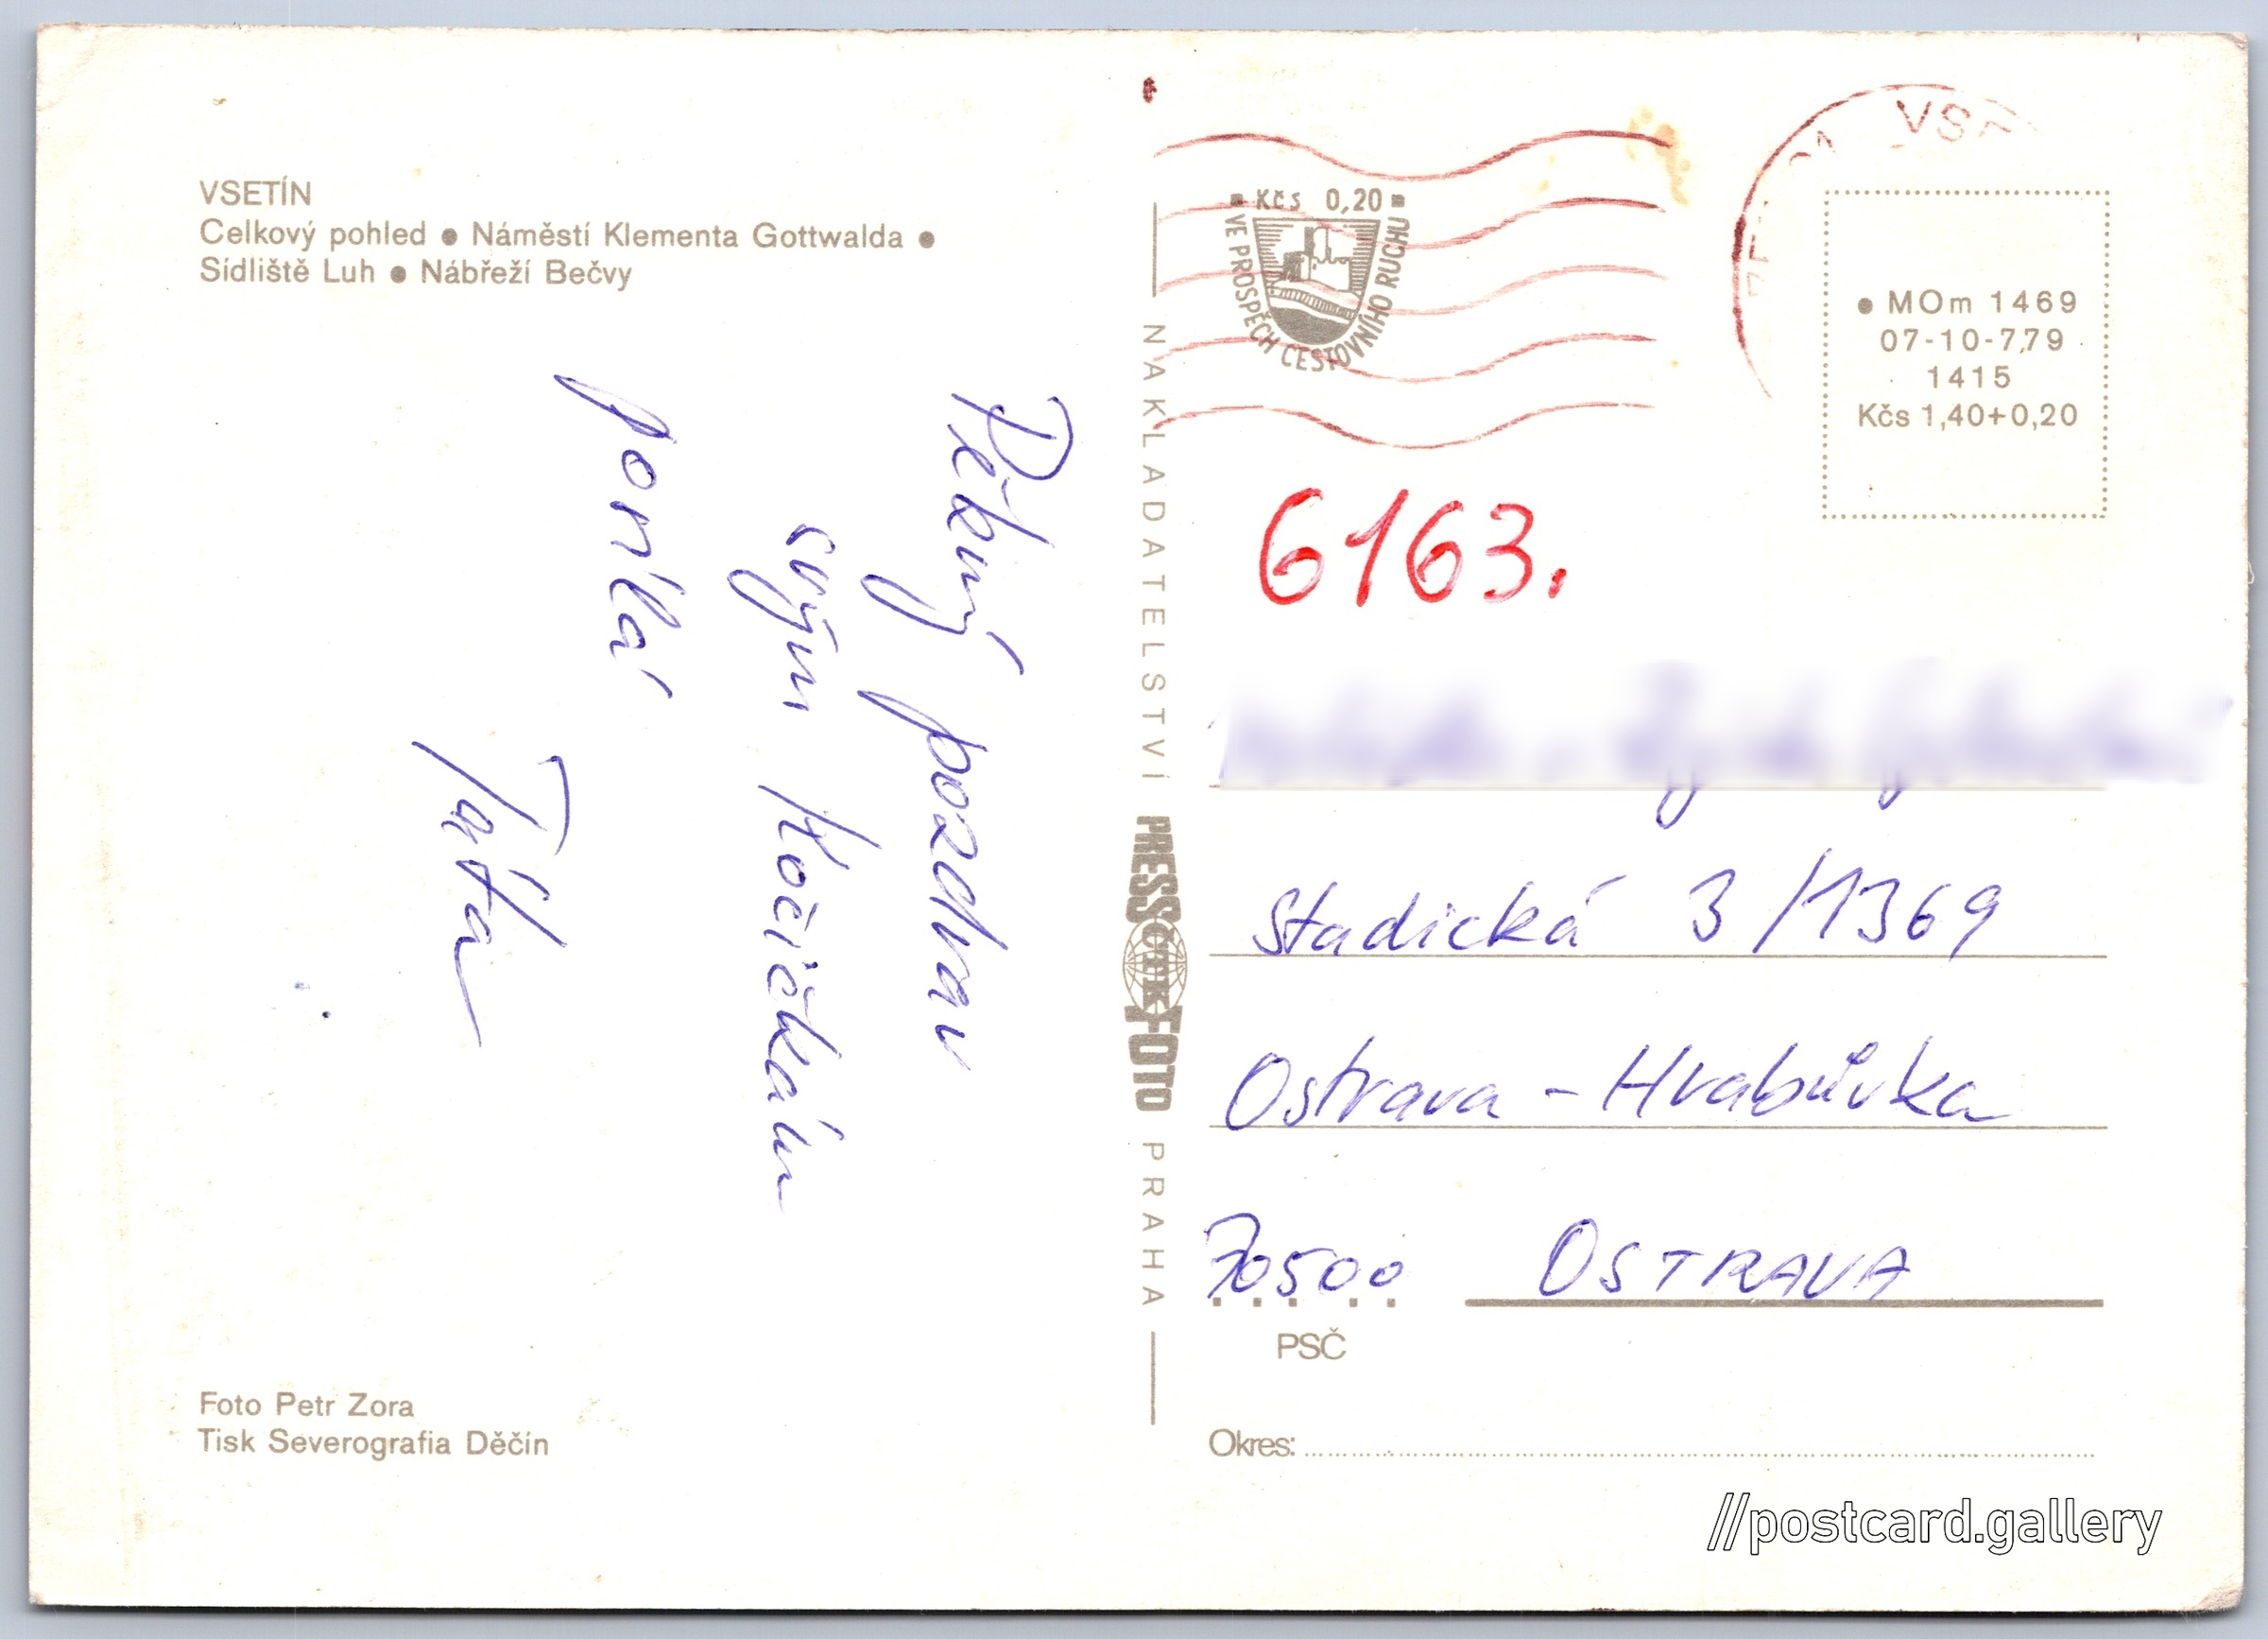 VSETÍN
Celkový pohled ● Náměstí Klementa Gottwalda ●
Sídliště Luh ● Nábřeží Bečvy
Pěkný pozdrav
svým Kočičkám
posílá
Táťa
Foto Petr Zora
Tisk Severografia Děčín
NAKLADATELSTVÍ PRESSČTKFOTO PRAHA
Kčs 0,20
VE PROSPĚCH CESTOVNÍHO RUCHU
● MOm 1469
07-10-779
1415
Kčs 1,40+0,20
6163.
Stadická 3/1369
Ostrava - Hrabůvka
70500 OSTRAVA
PSČ
Okres:
//postcard.gallery